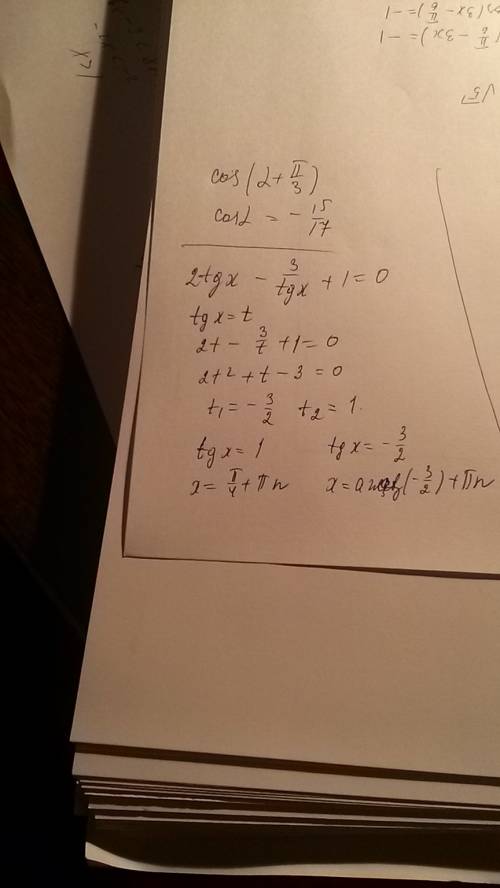 cos(α + π/3)
cosα = - 15/17
2tgx - 3/tgx + 1 = 0
tgx = t
2t - 3/t + 1 = 0
2t² + t - 3 = 0
t₁ = - 3/2 t₂ = 1.
tgx = 1 tgx = - 3/2
x = π/4 + πn x = (- 3/2) + πn
(3x - π/6) = -1
π/6 - 3x) = -1
√5